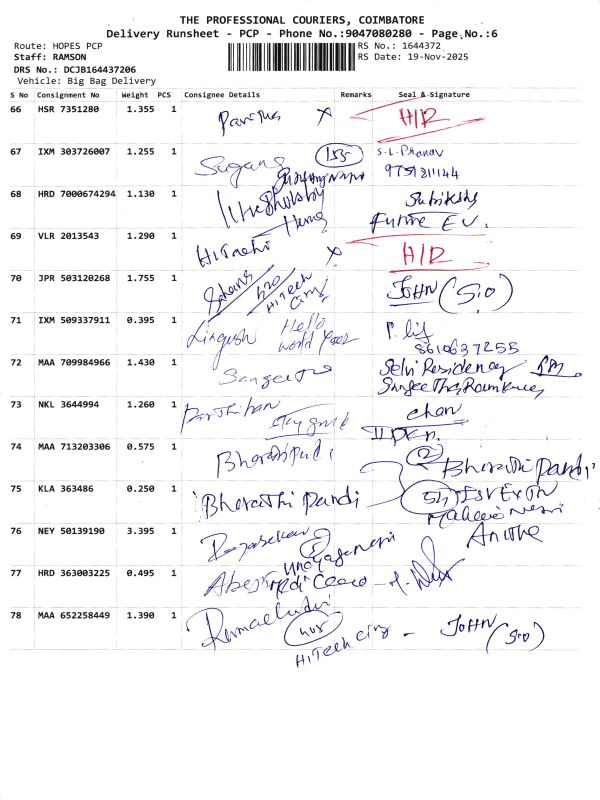 THE PROFESSIONAL COURIERS, COIMBATORE
Delivery Runsheet - PCP - Phone No.:9047080280 - Page No.:6
Route: HOPES PCP
RS No.: 1644372
Staff: RAMSON
RS Date: 19-Nov-2025
DRS No.: DCJB164437206
Vehicle: Big Bag Delivery
S No Consignment No Weight PCS Consignee Details Remarks Seal & Signature
66 HSR 7351280 1.355 1 x H/R
67 IXM 303726007 1.255 1 Sugans 155 S.L.Pranav
9751811144
68 HRD 7000674294 1.130 1
Hema Future EV.
69 VLR 2013543 1.290 1 HiTachi x H/R
70 JPR 503120268 1.755 1 HiTech City JOHN (S.O)
71 IXM 509337911 0.395 1 Lingesh Hello
World
8610637255
72 MAA 709984966 1.430 1 Sangeetha Selvi Residency
Sangeetha Ramkumar
73 NKL 3644994 1.260 1 Parthiban
74 MAA 713203306 0.575 1 Bharathipandi 2 Bharathi Pandi
75 KLA 363486 0.250 1 Bharathi Pandi
76 NEY 50139190 3.395 1 Rajasekar Anitha
77 HRD 363003225 0.495 1
78 MAA 652258449 1.390 1 HiTech city - JOHN (S.O)